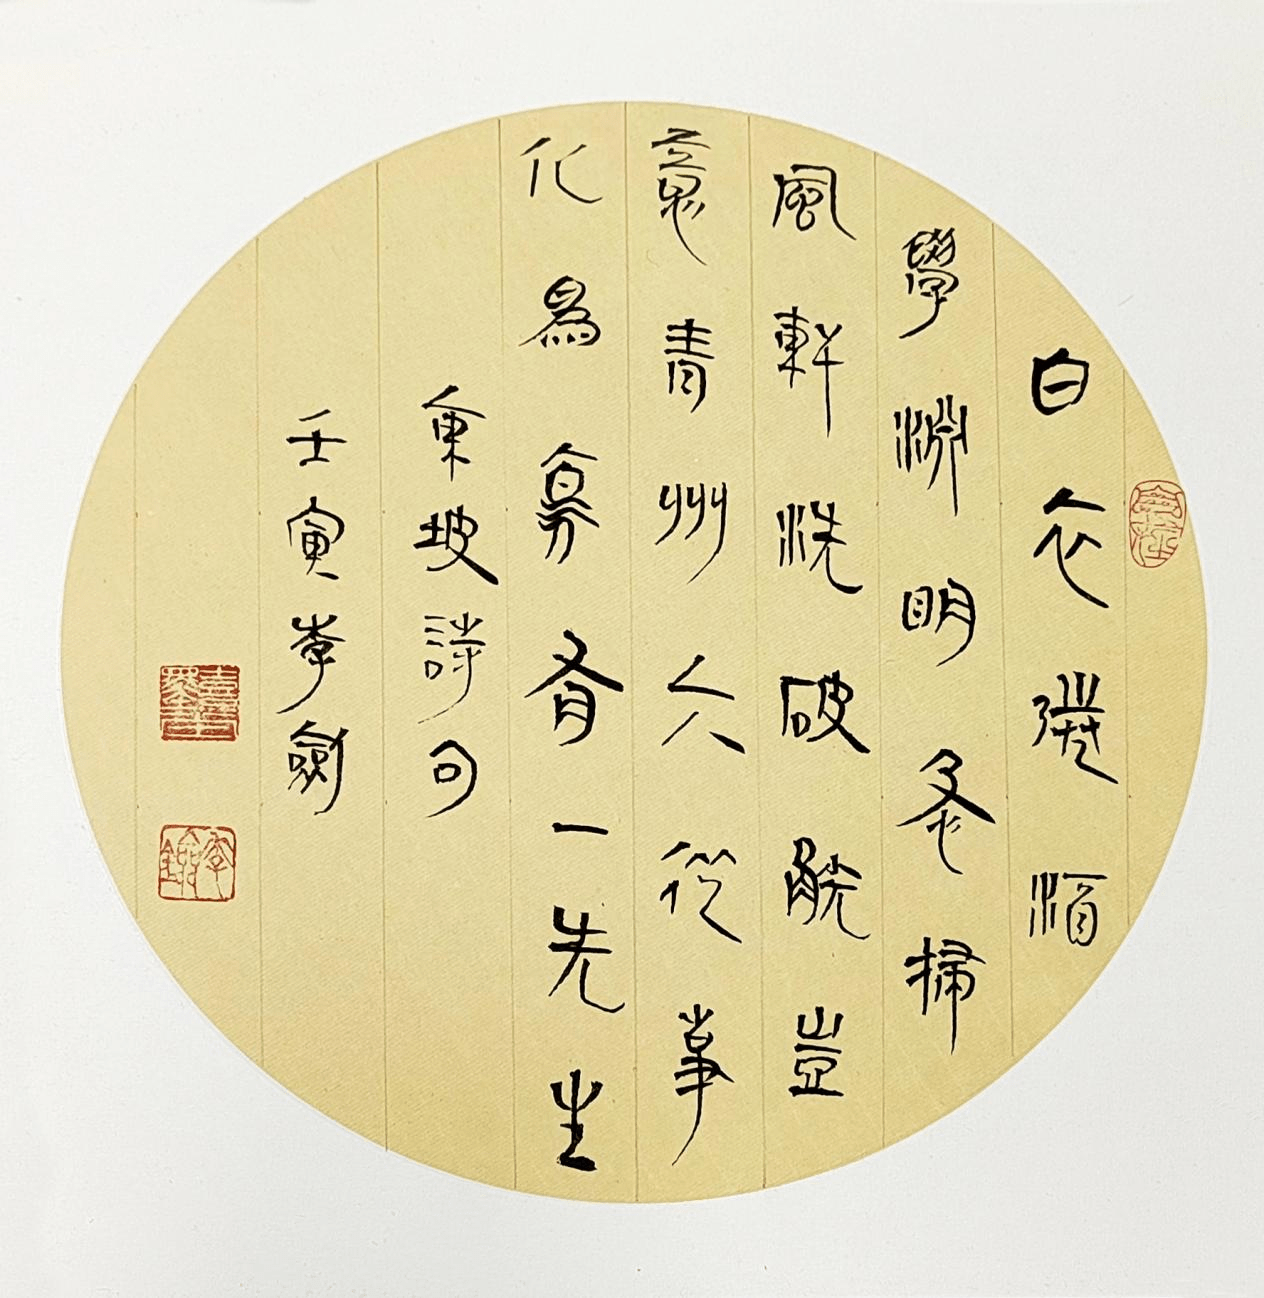 白衣送酒
學淵明急掃
風軒洗破觥豈
意青州六從事
化爲烏有一先生
東坡詩句
壬寅李劍